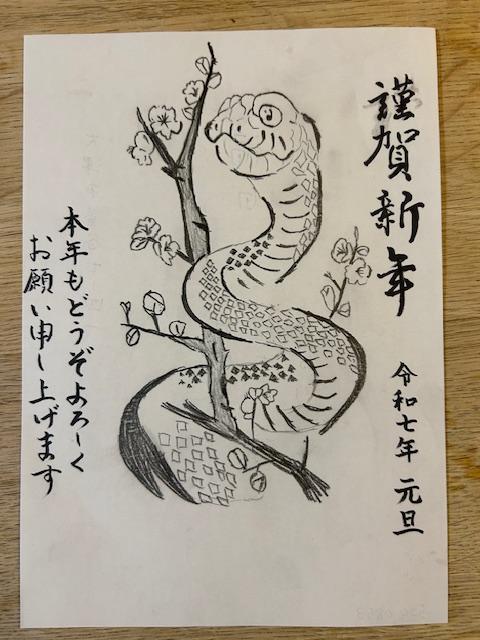 謹賀新年
令和七年 元旦
本年もどうぞよろしく
お願い申し上げます